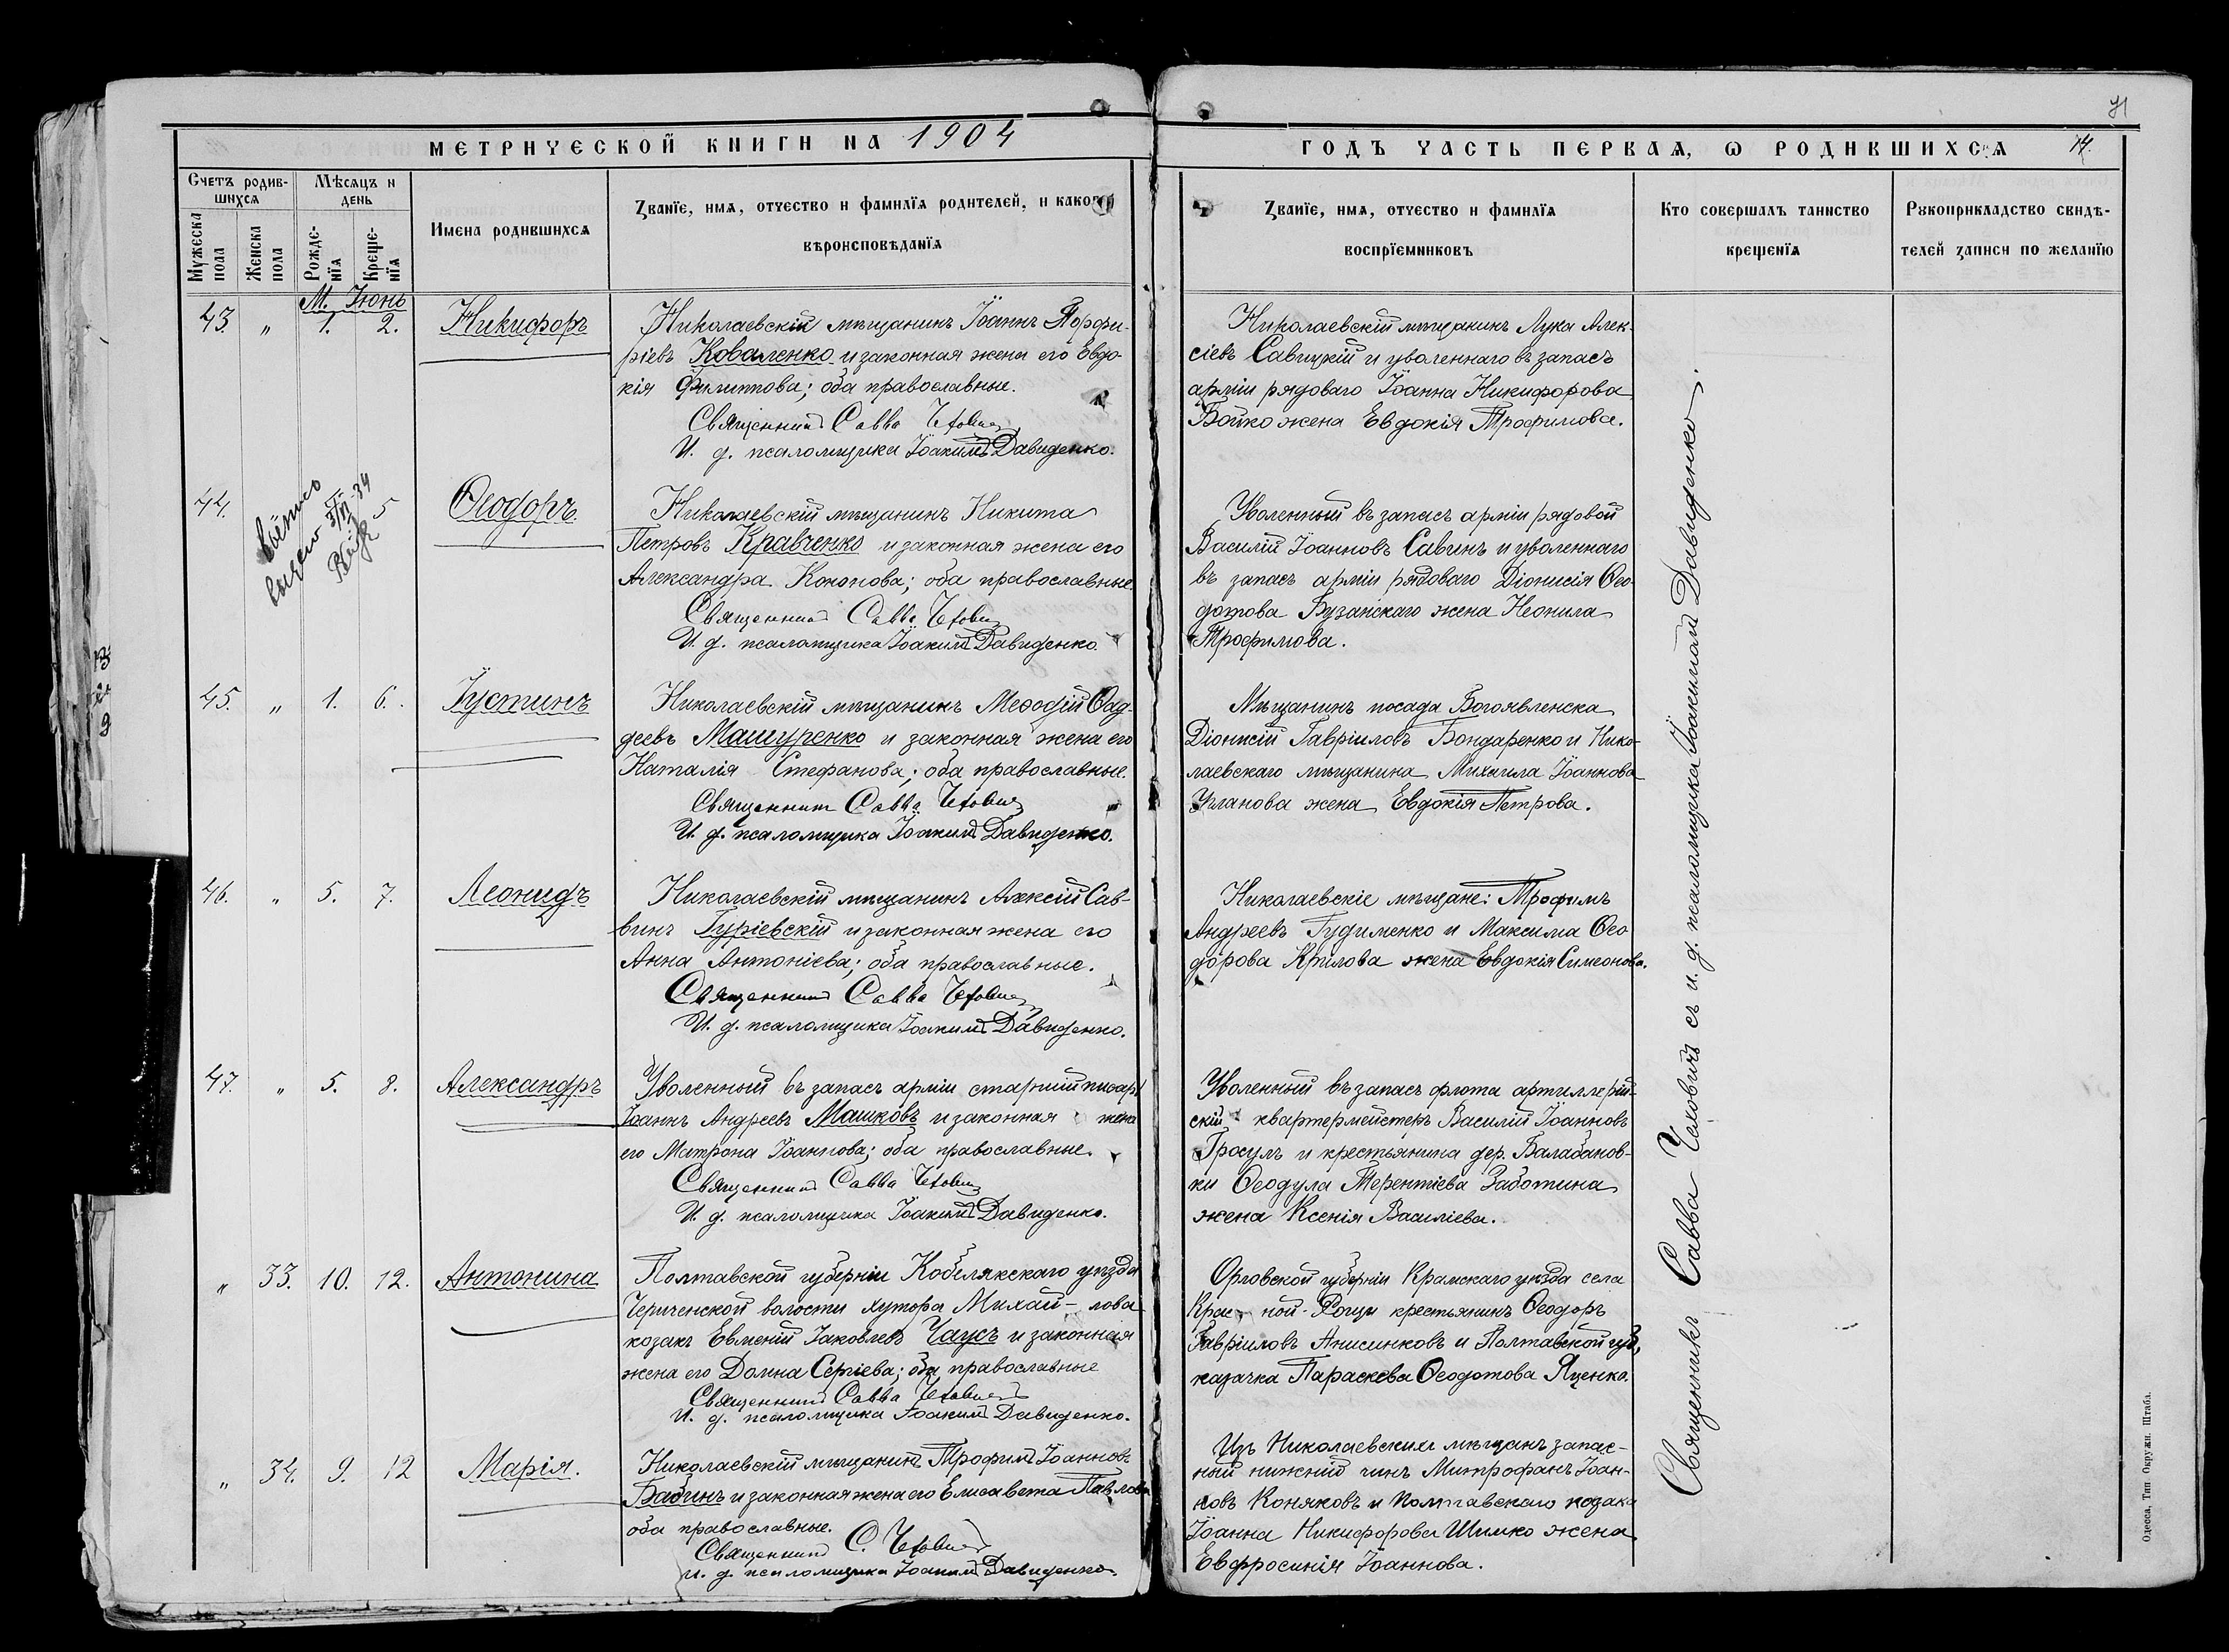 71
МЕТРИЧЕСКОЙ КНИГИ НА 1904
ГОДЪ ЧАСТЬ ПЕРВАЯ, Ѡ РОДИВШИХСЯ 14.
Счетъ родив-
шихся
Мужеска пола
Женска пола
Мѣсяцъ и
день
Рожде-
нїя
Креще-
нїя
Имена родившихся
Званїе, имя, отчество и фамилїя родителей, и какого
вѣроисповѣданїя
Званїе, имя, отчество и фамилїя
воспрїемниковъ
Кто совершалъ таинство
крещенїя
Рукоприкладство свидѣ-
телей записи по желанїю
М. Іюнь
43 " 1. 2. Никифоръ
Николаевскій мѣщанинъ Іоаннъ Порфи-
ріевъ Коваленко и законная жена его Евдо-
кія Филиппова; оба православные.
Священникъ Савва Чеховичъ
И. д. псаломщика Іоакимъ Давиденко.
Николаевскій мѣщанинъ Лука Алек-
сіевъ Савицкій и уволеннаго въ запасъ
арміи рядоваго Іоанна Никифорова
Бойко жена Евдокія Трофимова.
44. 5 Ѳеодоръ
Николаевскій мѣщанинъ Никита
Петровъ Кравченко и законная жена его
Александра Кононова; оба православные.
Священникъ Савва Чеховичъ
И. д. псаломщика Іоакимъ Давиденко.
Уволенный въ запасъ арміи рядовой
Василій Іоанновъ Савинъ и уволеннаго
въ запасъ арміи рядоваго Діонисія Ѳео-
дотова Бузанскаго жена Неонила
Трофимова.
45. " 1. 6. Іустинъ
Николаевскій мѣщанинъ Меѳодій Ѳад-
деевъ Машуренко и законная жена его
Наталія Стефанова; оба православные.
Священникъ Савва Чеховичъ
И. д. псаломщика Іоакимъ Давиденко.
Мѣщанинъ посада Богоявленска
Діонисій Гавріиловъ Бондаренко и Нико-
лаевскаго мѣщанина Михаила Іоаннова
Уланова жена Евдокія Петрова.
46. " 5. 7. Леонидъ
Николаевскій мѣщанинъ Алексій Сав-
винъ Гуріевскій и законная жена его
Анна Антоніева; оба православные.
Священникъ Савва Чеховичъ
И. д. псаломщика Іоакимъ Давиденко.
Николаевскіе мѣщане: Трофимъ
Андреевъ Гудименко и Максима Ѳео-
дорова Крилова жена Евдокія Симеонова.
47. " 5. 8. Александръ
Уволенный въ запасъ арміи старшій писарь
Іоаннъ Андреевъ Машковъ и законная жена
его Матрона Іоаннова; оба православные.
Священникъ Савва Чеховичъ
И. д. псаломщика Іоакимъ Давиденко.
Уволенный въ запасъ флота артиллерій-
скій квартермейстеръ Василій Іоанновъ
Гросулъ и крестьянина дер. Балабанов-
ки Ѳеодула Терентіева Заботина
жена Ксенія Василіева.
" 33. 10. 12. Антонина
Полтавской губерніи Кобелякскаго уѣзда
хутора Михай- лова
козакъ Евменій Іаковлевъ Чаусъ и законная
жена его Домна Сергіева; оба православные
Священникъ Савва Чеховичъ
И. д. псаломщика Іоакимъ Давиденко.
Орловской губерніи уѣзда села
Крас- ной-Рощи крестьянинъ Ѳеодоръ
Гавріиловъ Анисинковъ и Полтавской губ.
казачка Параскева Ѳеодотова Яценко.
" 34. 9. 12 Марія.
Николаевскій мѣщанинъ Трофимъ Іоанновъ
Бабинъ и законная жена его Елисавета Павлова
оба православные.
Священникъ С. Чеховичъ
И. д. псаломщика Іоакимъ Давиденко.
Изъ Николаевскихъ мѣщанъ запас-
ный нижній чинъ Митрофанъ Іоан-
новъ Коняковъ и Полтавскаго козака
Іоанна Никифорова Шимко жена
Евфросинія Іоаннова.
Священникъ Савва Чеховичъ съ и. д. псаломщика Іоакимомъ Давиденко.
Одесса, Тип. Окружн. Штаба.